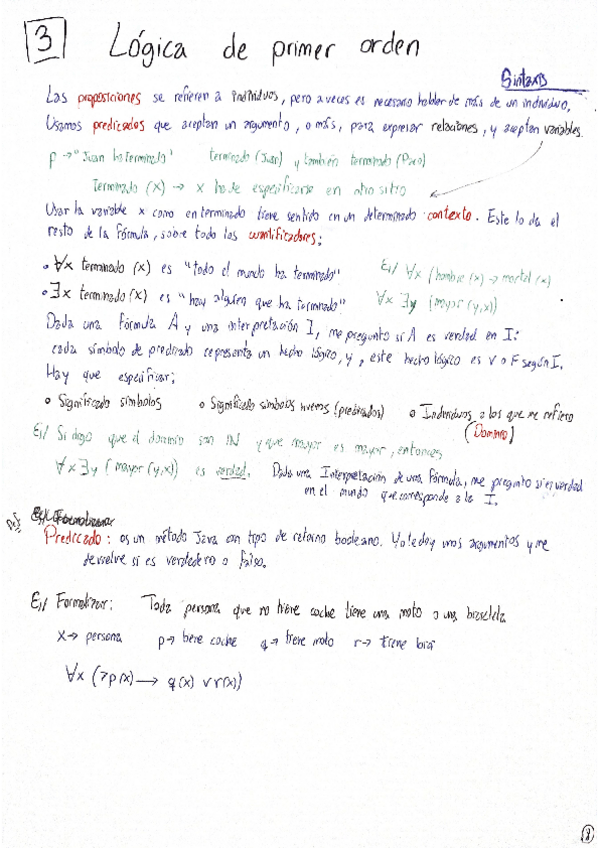 3 Lógica de primer orden
Sintaxis
Las proposiciones se refieren a individuos, pero a veces es necesario hablar de más de un individuo.
Usamos predicados que aceptan un argumento, o más, para expresar relaciones, y aceptan variables.
p → "Juan ha terminado" terminado (Juan) y también terminado (Paco)
Terminado (X) → x ha de especificarse en otro sitio
Usar la variable x como en terminado tiene sentido en un determinado contexto. Este lo da el
resto de la fórmula, sobre todo los cuantificadores:
• ∀x terminado (x) es "todo el mundo ha terminado"
E1/ ∀x (hombre (x) → mortal (x)
• ∃x terminado (x) es "hay alguien que ha terminado"
∀x ∃y (mayor (y,x))
Dada una fórmula A y una interpretación I, me pregunto si A es verdad en I:
cada símbolo de predicado representa un hecho lógico, y, este hecho lógico es V o F según I.
Hay que especificar:
• Significado símbolos • Significado símbolos nuevos (predicados) • Individuos a los que me refiero
(Dominio)
E1/ Si digo que el dominio son ℕ y que mayor es mayor, entonces
∀x ∃y (mayor (y,x)) es verdad. Dada una Interpretación de una fórmula, me pregunto si es verdad
en el mundo que corresponde a la I.
Def
Predicado: es un método Java con tipo de retorno booleano. Yo le doy unos argumentos y me
devuelve si es verdadero o falso.
E1/ Formalizar: Toda persona que no tiene coche tiene una moto o una bicicleta
X → persona p → tiene coche q → tiene moto r → tiene bici
∀x (¬p(x) → q(x) ∨ r(x))